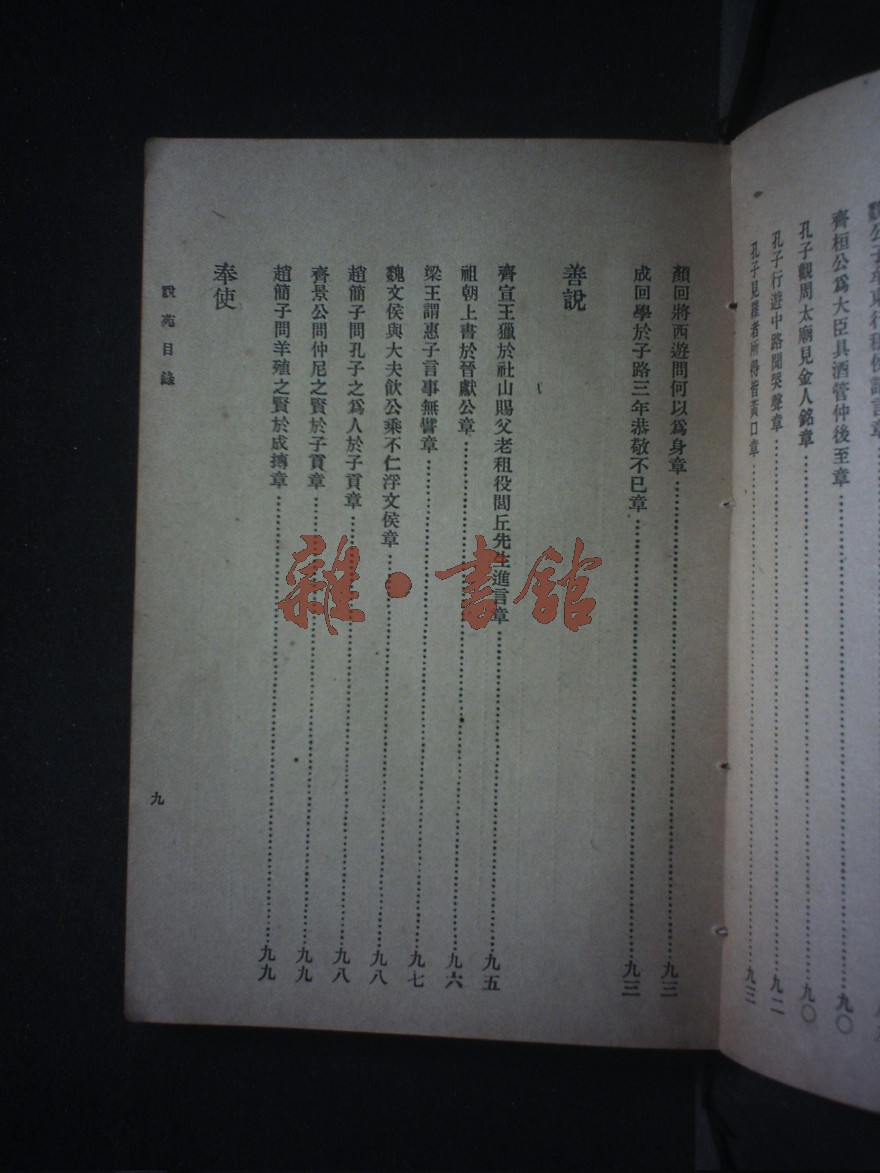 齊桓公爲大臣具酒管仲後至章……九〇
孔子觀周太廟見金人銘章……九〇
孔子行遊中路聞哭聲章……九二
孔子見羅者所得皆黃口章……九三
顏回將西遊問何以爲身章……九三
成回學於子路三年恭敬不已章……九三
善說
齊宣王獵於社山賜父老租役閭丘先生進言章……九五
祖朝上書於晉獻公章……九六
梁王謂惠子言事無譬章……九七
魏文侯與大夫飲公乘不仁浮文侯章……九八
趙簡子問孔子之爲人於子貢章……九八
齊景公問仲尼之賢於子貢章……九九
趙簡子問羊殖之賢於成摶章……九九
奉使
說苑目錄
九
雜·書館